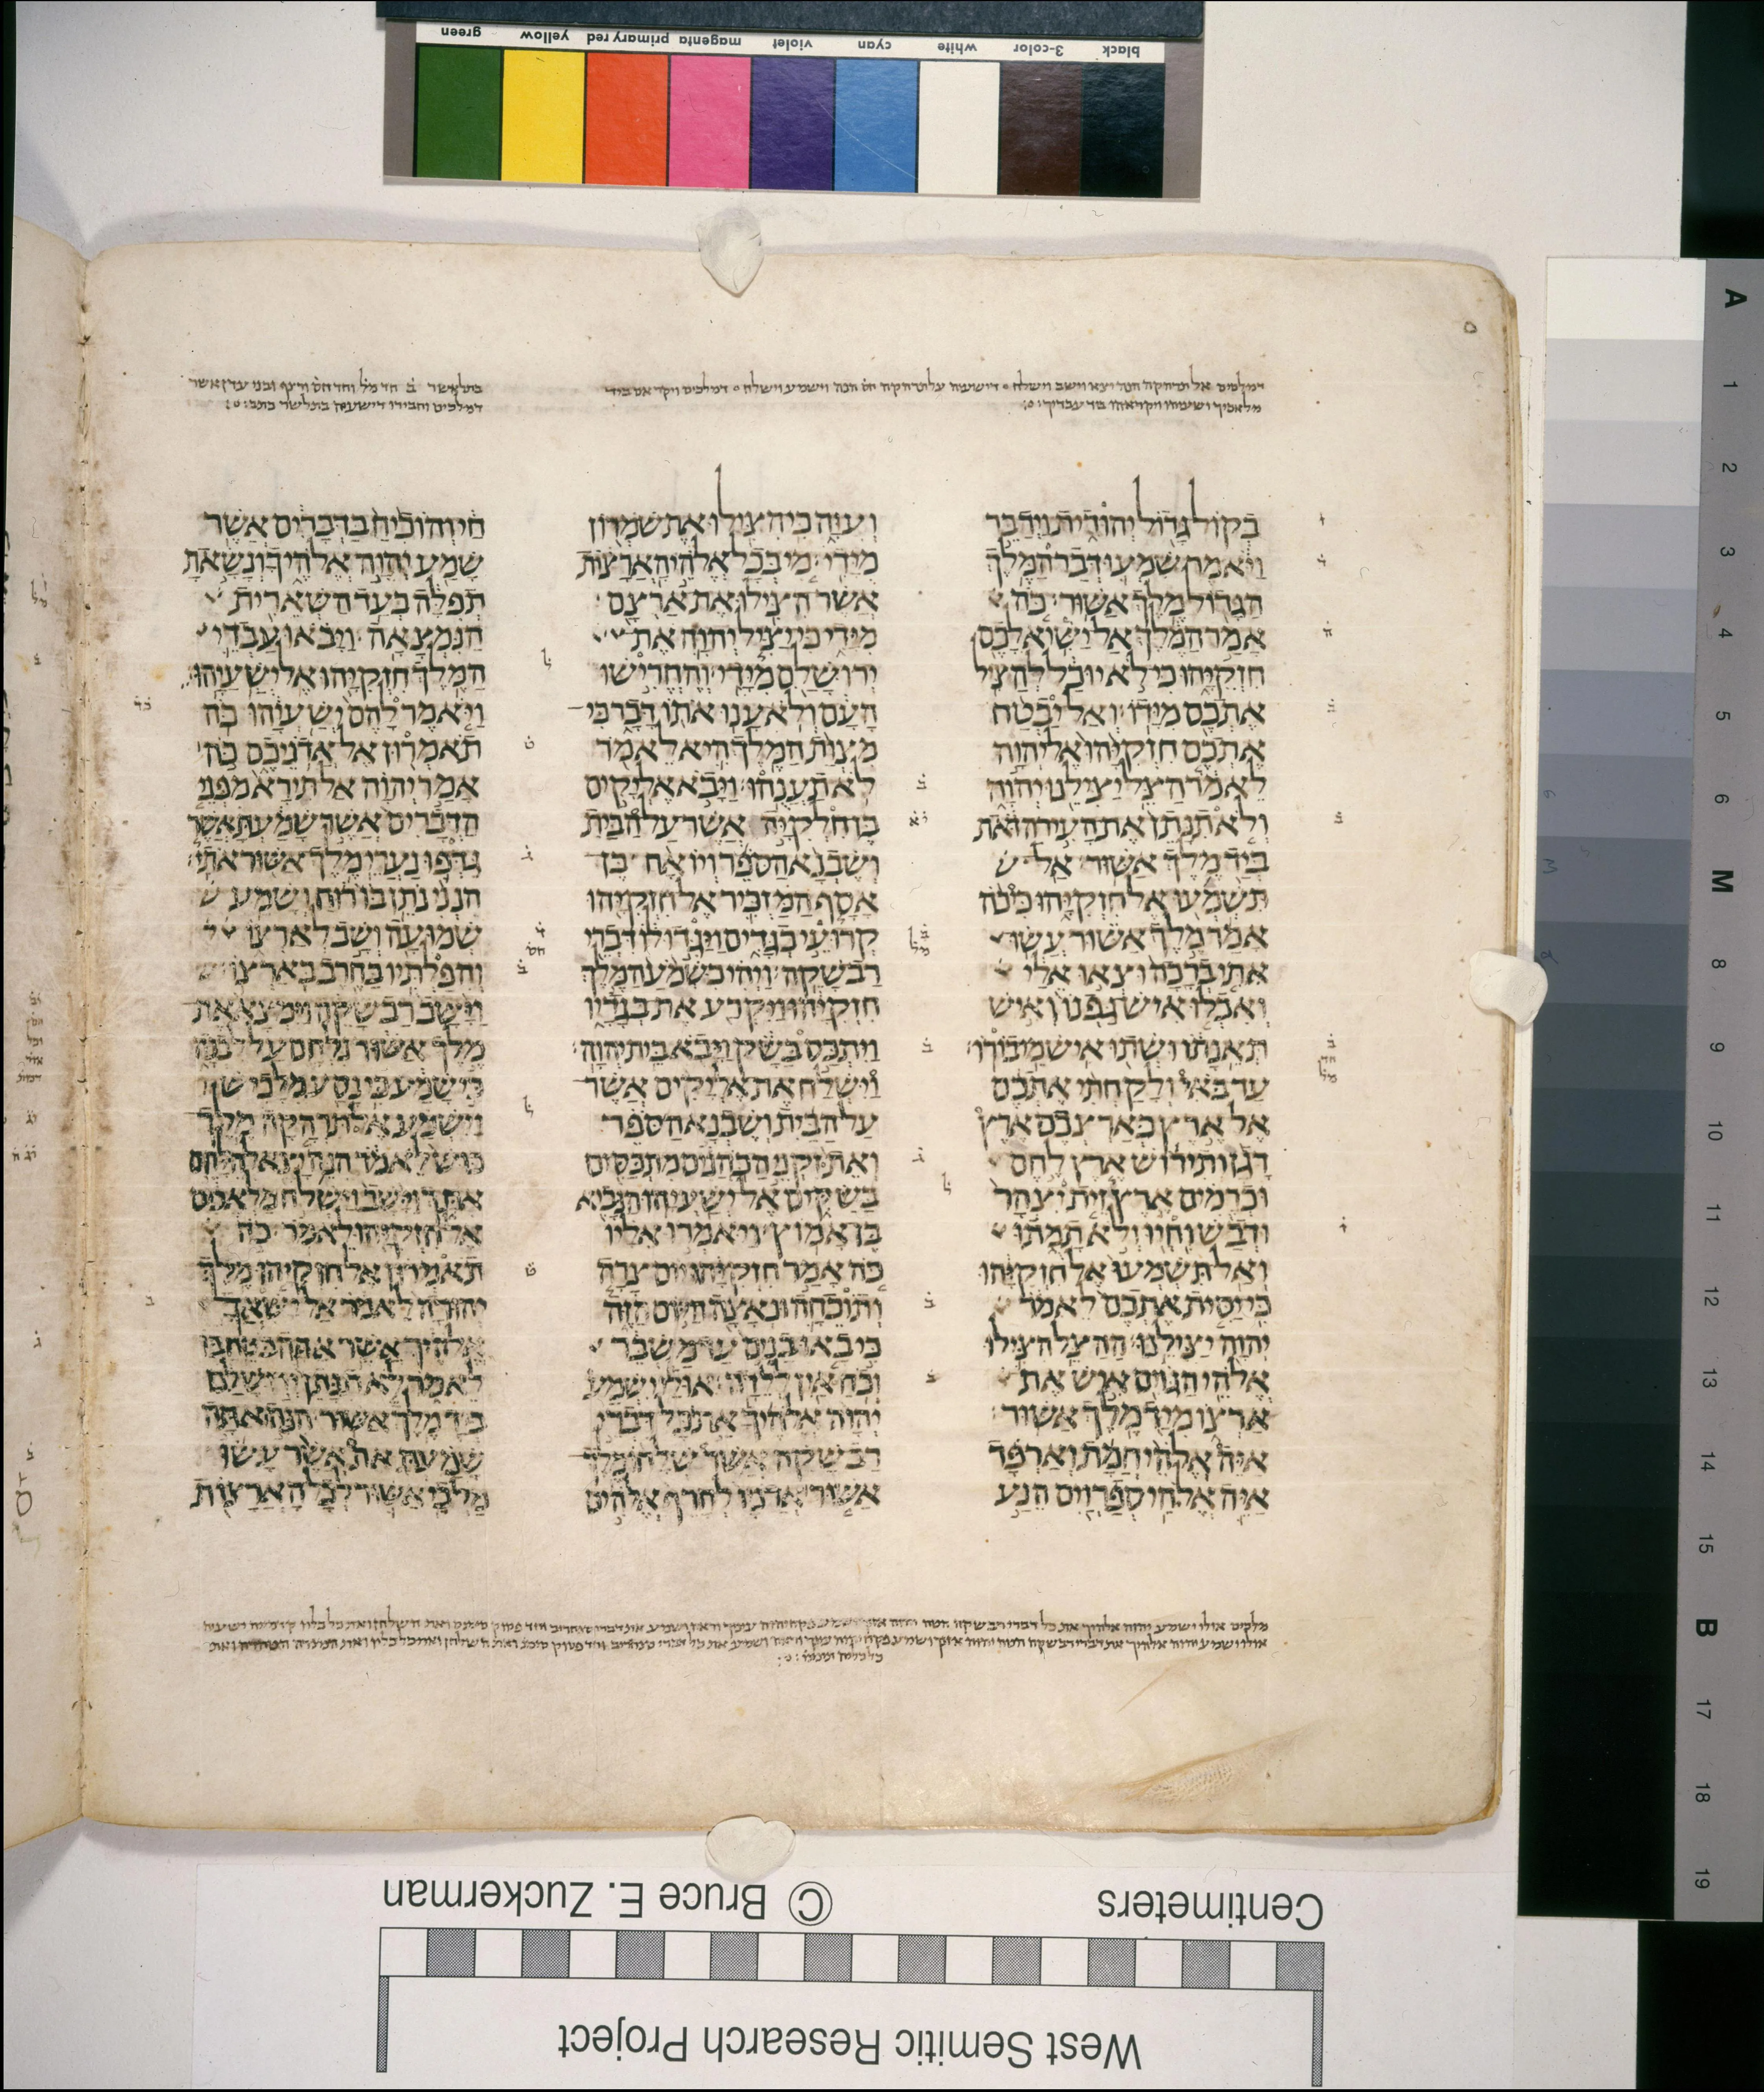 green yellow primary red magenta violet cyan white 3-color black
דמלכים אל תרהקה הנה יצא וישב וישלח דישעיה על תרהקה
בקול גדול יהודית וידבר
ויאמר שמעו דבר המלך
הגדול מלך אשור כה
אמר המלך אל ישיא לכם
חזקיהו כי לא יוכל להציל
אתכם מידו ואל יבטח
אתכם חזקיהו אל יהוה
לאמר הצל יצילנו יהוה
ולא תנתן את העיר הזאת
ביד מלך אשור אל
תשמעו אל חזקיהו כי כה
אמר מלך אשור עשו
אתי ברכה וצאו אלי
ואכלו איש גפנו ואיש
תאנתו ושתו איש מי בורו
עד באי ולקחתי אתכם
אל ארץ כארצכם ארץ
דגן ותירוש ארץ לחם
וכרמים ארץ זית יצהר
ודבש וחיו ולא תמתו
ואל תשמעו אל חזקיהו
כי יסית אתכם לאמר
יהוה יצילנו ההצל הצילו
אלהי הגוים איש את
ארצו מיד מלך אשור
איה אלהי חמת וארפד
איה אלהי ספרוים הנע
ועוה כי הצילו את שמרון
מידי מי בכל אלהי הארצות
אשר הצילו את ארצם
מידי כי יציל יהוה את
ירושלם מידי והחרישו
העם ולא ענו אתו דבר כי
מצות המלך היא לאמר
לא תענהו ויבא אליקים
בן חלקיה אשר על הבית
ושבנא הספר ויואח בן
אסף המזכיר אל חזקיהו
קרועי בגדים ויגדו לו דברי
רבשקה ויהי כשמע המלך
חזקיהו ויקרע את בגדיו
ויתכס בשק ויבא בית יהוה
וישלח את אליקים אשר
על הבית ושבנא הספר
ואת זקני הכהנים מתכסים
בשקים אל ישעיהו הנביא
בן אמוץ ויאמרו אליו
כה אמר חזקיהו יום צרה
ותוכחה ונאצה היום הזה
כי באו בנים עד משבר
וכח אין ללדה אולי ישמע
יהוה אלהיך את כל דברי
רבשקה אשר שלחו מלך
אשור אדניו לחרף אלהים
חי והוכיח בדברים אשר
שמע יהוה אלהיך ונשאת
תפלה בעד השארית
הנמצאה ויבאו עבדי
המלך חזקיהו אל ישעיהו
ויאמר להם ישעיהו כה
תאמרון אל אדניכם כה
אמר יהוה אל תירא מפני
הדברים אשר שמעת אשר
גדפו נערי מלך אשור אתי
הנני נתן בו רוח ושמע
שמועה ושב לארצו
והפלתיו בחרב בארצו
וישב רבשקה וימצא את
מלך אשור נלחם על לבנה
כי שמע כי נסע מלכיש
וישמע אל תרהקה מלך
כוש לאמר הנה יצא להלחם
אתך וישב וישלח מלאכים
אל חזקיהו לאמר כה
תאמרון אל חזקיהו מלך
יהודה לאמר אל ישאך
אלהיך אשר אתה בטח בו
לאמר לא תנתן ירושלם
ביד מלך אשור הנה אתה
שמעת את אשר עשו
מלכי אשור לכל הארצות
A 1 2 3 4 5 6 M 8 9 10 11 12 13 14 15 B 17 18 19
Centimeters © Bruce E. Zuckerman
West Semitic Research Project